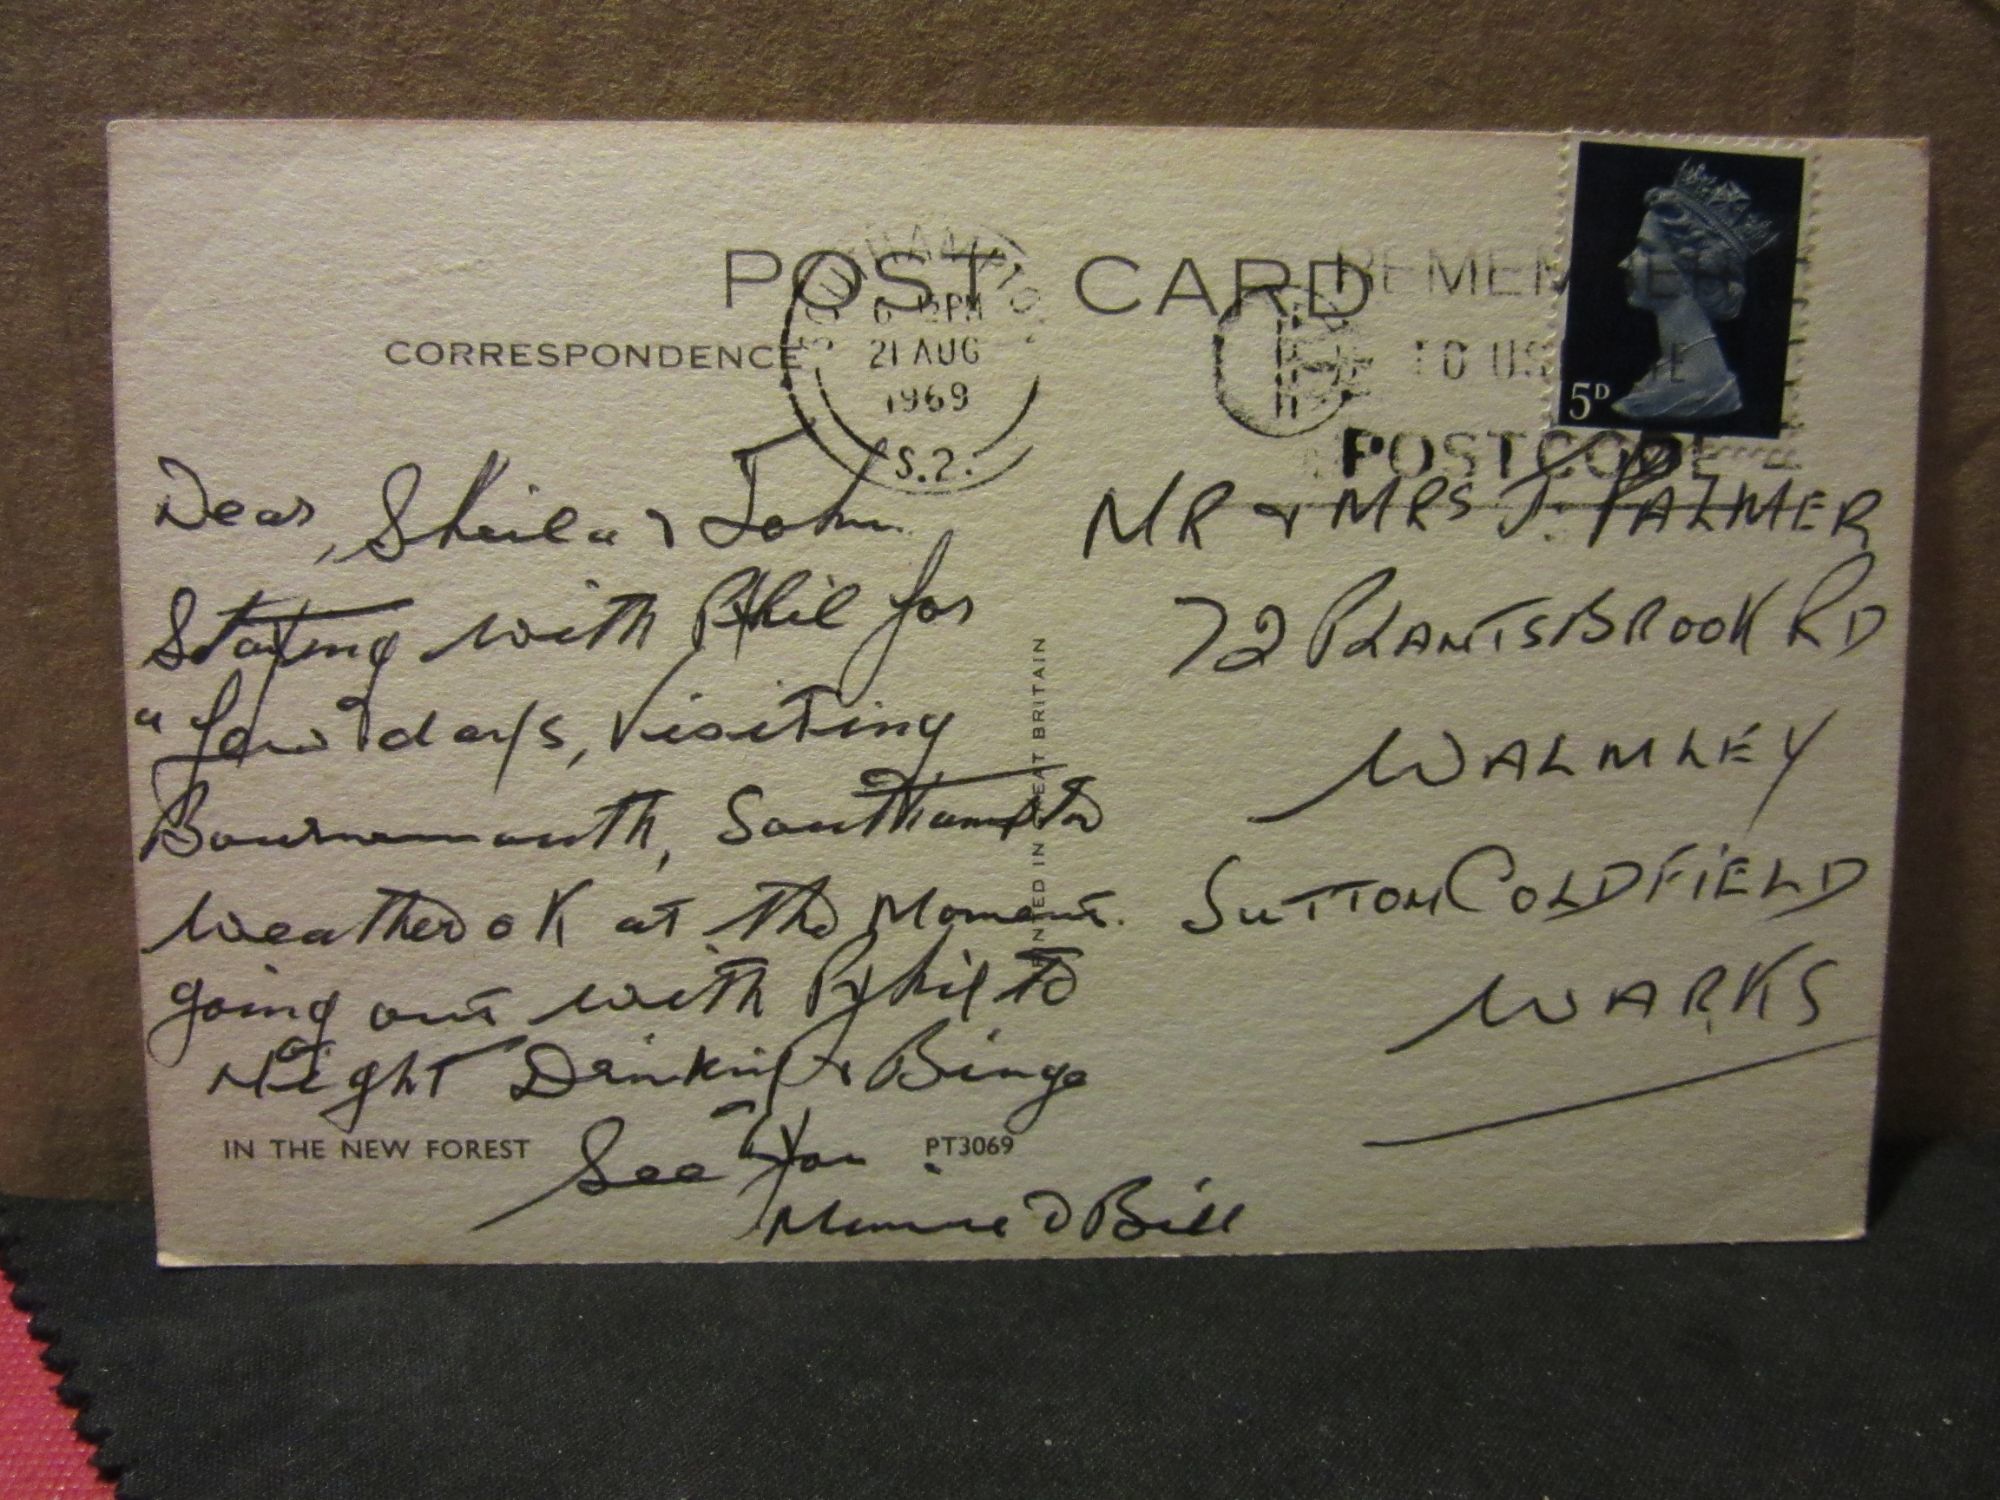 POST CARD
CORRESPONDENCE
SOUTHAMPTON
6 12PM
21 AUG
1969
S.2.
REMEMBER
TO USE THE
POSTCODE
5D
Dear, Sheila & John
Staying with Phil for
a few days, Visiting
Bournemouth, Southampton
Weather OK at the Moment.
going out with Phil to
Night Drinking & Bingo
See You
Minnie & Bill
MR & MRS J. PALMER
72 PLANTSBROOK RD
WALMLEY
SUTTON COLDFIELD
WARKS
PRINTED IN GREAT BRITAIN
IN THE NEW FOREST
PT3069